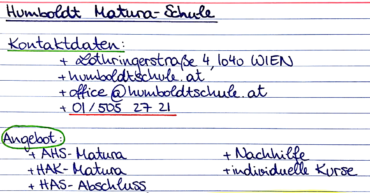 Humboldt Matura-Schule
Kontaktdaten:
+ Lothringerstraße 4, 1040 WIEN
+ humboldtschule.at
+ office@humboldtschule.at
+ 01/505 27 21
Angebot:
+ AHS-Matura + Nachhilfe
+ HAK-Matura + individuelle Kurse
+ HAS-Abschluss